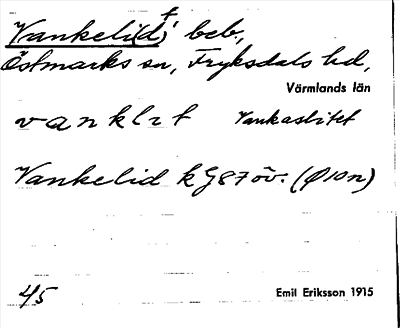 Vankeli(d)t beb.,
Östmarks sn, Fryksdals hd,
Värmlands län
vanklit Vankaslitet
Vankelid kG87öv. (Ø10n)
45 Emil Eriksson 1915